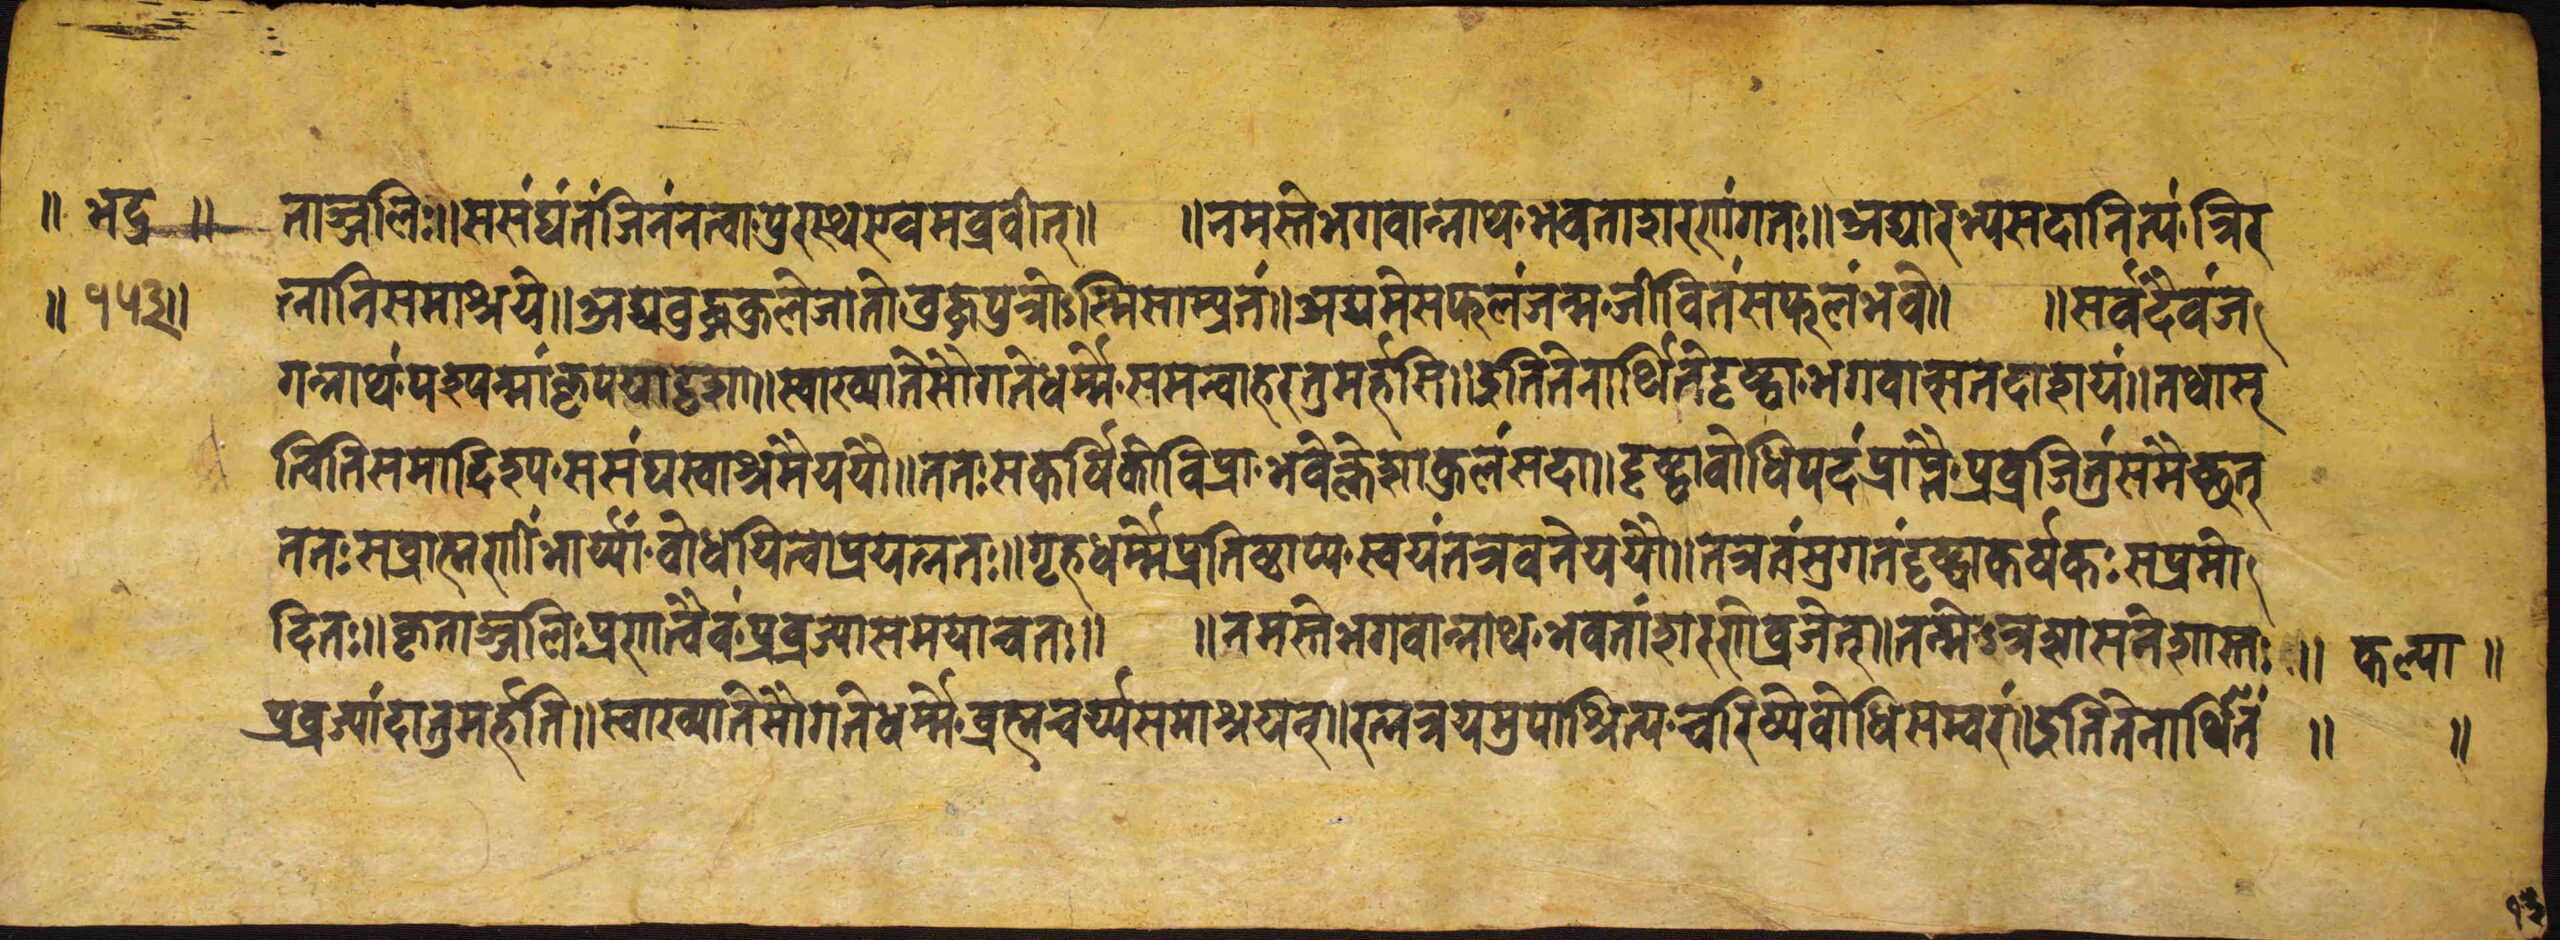 ॥ भद्र ॥ ताञ्जलिः॥ ससंघंतंजिनंनत्वा पुरस्थएवमब्रवीत्॥ ॥नमस्तेभगवान्नाथ भवताशरणांगतः॥ अद्यारभ्यसदानित्यं त्रिर
॥ १५३॥ त्नानिसमाश्रये॥ अद्यबुद्धकुलेजातो बुद्धपुत्रोऽस्मिसाम्प्रतं॥ अद्यमेसफलंजन्म जीवितंसफलंभवे॥ ॥सर्वदैवंज
गन्नाथं पश्यन्मांकृपयादृशा॥ स्वाख्यातेसौगतेधर्म्मे समन्वाहरतुमर्हसि॥ इतितेनार्थितेदृष्ट्वा भगवान्सतदाशयं॥ तथास्
त्वितिसमादिश्य ससंघस्वाश्रमेययौ॥ ततःसकर्षिकोविप्रा भवेक्लेशाकुलंसदा॥ दृष्ट्वाबोधिपदंप्राप्तै प्रव्रजितुंसमैच्छत्
ततःसब्राह्मणीं भार्य्यां बोधयित्वाप्रयत्नतः॥ गृहधर्म्मेप्रतिष्ठाप्य स्वयंतत्रवनेययौ॥ तत्रतंसुगतंदृष्ट्वाकर्षकःसप्रमो
दितः॥ कृताञ्जलिःप्रणात्वैवं प्रव्रज्यासमयाचत॥ ॥नमस्तेभगवान्नाथ भवतांशरणेव्रजेत्॥ तन्मेऽत्रशासनेशास्तः ॥ कल्पा ॥
प्रव्रज्यांदातुमर्हति॥ स्वाख्यातेसौगतेधर्म्मे ब्रह्मचर्य्यसमाश्रयन्॥ रत्नत्रयमुपाश्रित्य चरिष्येबोधिसम्वरं॥ इतितेनार्थितं ॥ ॥